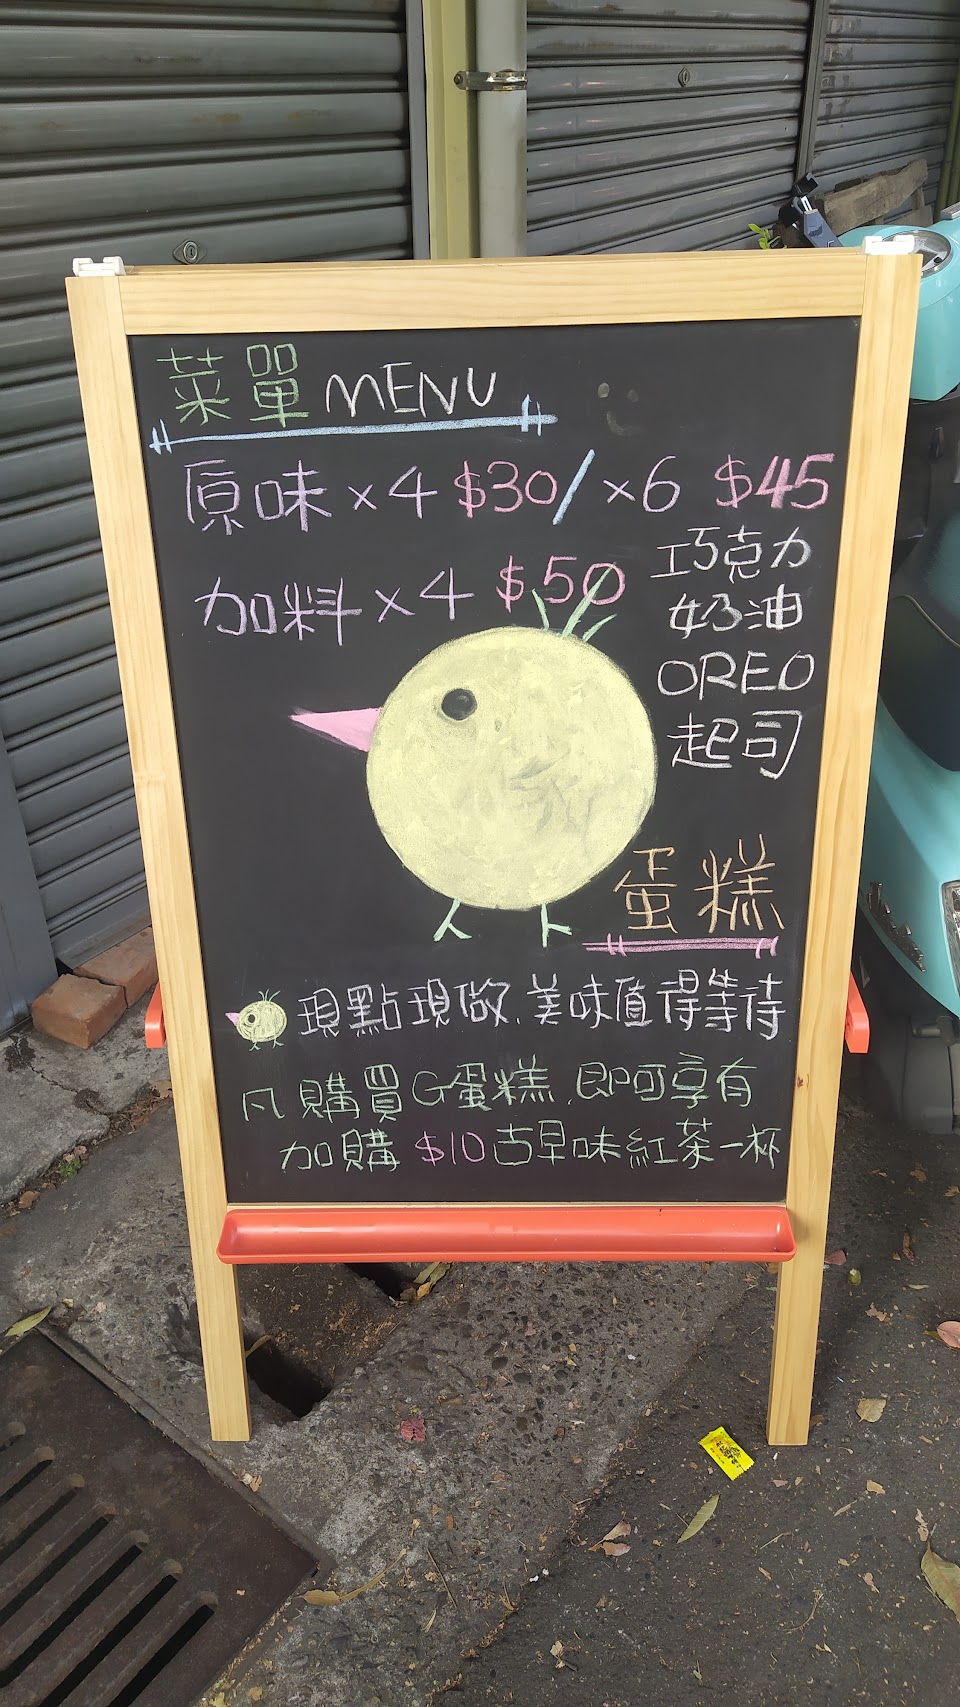 菜單 MENU
原味×4 $30/×6 $45
加料×4 $50
巧克力
奶油
OREO
起司
蛋糕
現點現做,美味值得等待
凡購買G蛋糕,即可享有
加購 $10古早味紅茶一杯